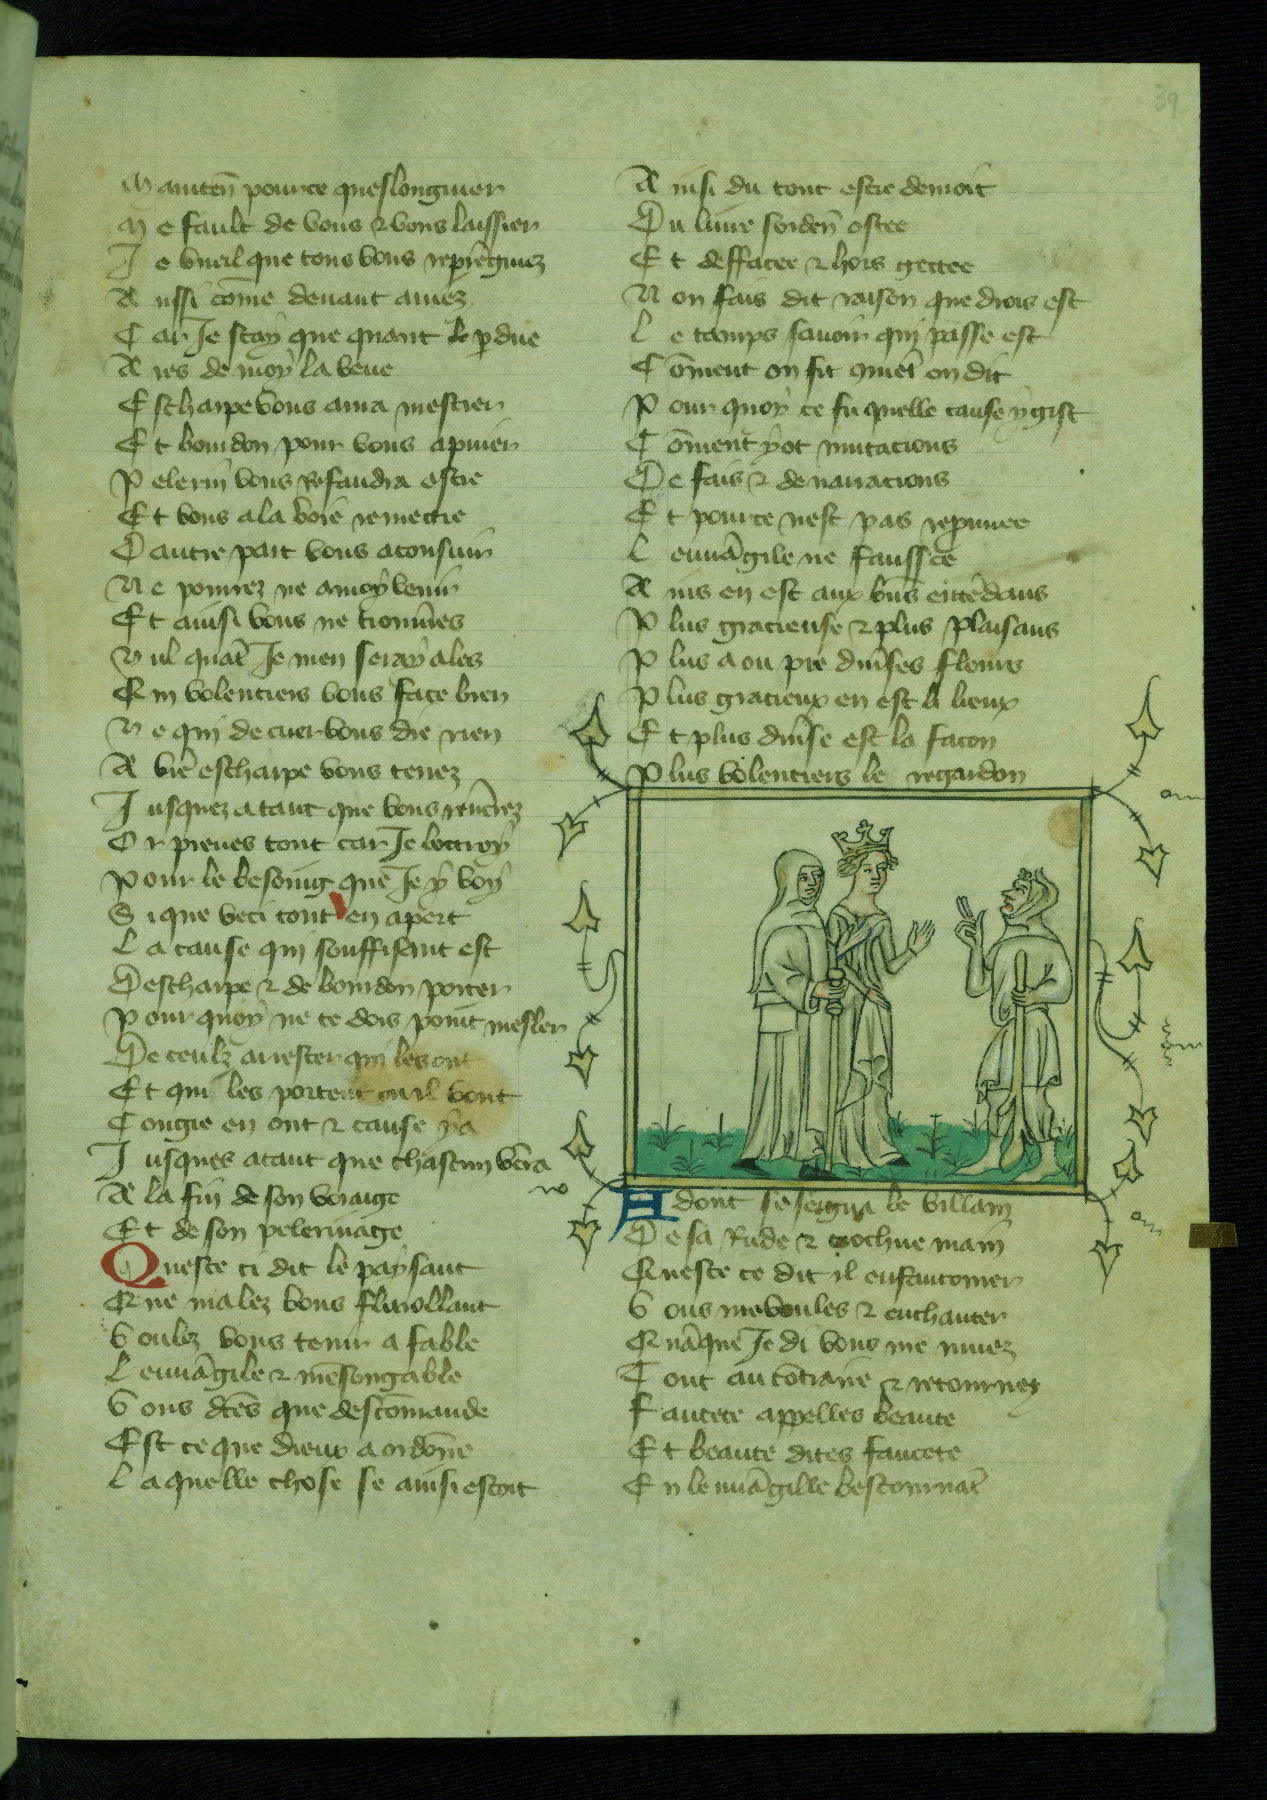 39
Mainten̄ pource queslongnier
Me fault de vous & vous laissier
Je vueil que tous vous repreigniez
Aussi cōme deuant auiez
Car Je scay que quant le pdue
Ares de moy la veue
Escharpe vous aura mestier
Et bourdon pour vous apuier
Pelerin vous Refaudra estre
Et vous a la voie remectre
Dautre part vous aconsuiuir
Ne pourrez ne a moy venir
Et ainsi vous ne trouuēres
Nul quāt Je men seray ales
Qui volentiers vous face bien
Ne qui de cuer vous die rien
A vrē escharpe vous tenez
Jusquez a tant que vous reuērez
Or prenes tout car Je loctroy
Pour le besoing que Je y voy
Si que veci tout en apert
La cause qui souffisant est
Descharpe & de bourdon porter
Pour quoy ne te dois point mesler
De ceulz arrester qui les ont
Et qui les portent ou il vont
Congie en ont & cause y a
Jusques atant que chascun vēra
A la fin de son voiaige
Et de son pelerinage
Queste ci dit le paysant
Que malez vous flauollant
Voulez vous tenir a fable
Leuuāgile & mēsongable
Vous dtēs que descōmande
Est ce que dieux a ordōne
Laquelle chose se ainsi estoit
Ainsi du tout estre deuroit
Du liure soiden̄ ostee
Et deffacee & hors gectee
Non fais dit raison que drois est
Le temps sauoir qui passe est
Cōment on fit cōmēt on dit
Pour quoy ce fu quelle cause y gist
Cōment y ot mutacions
De fais & de narracions
Et pource nest pas reprouuee
Leuuāgile ne faussee
Ains en est aux bn̄s entēdans
Plus gracieuse & plus plaisans
Plus a ou pre diūses fleurs
Plus gracieux en est li lieux
Et plus diūse est la facon
Plus volentiers le regardon
Adont se seigna le villain
De sa Rude & crochue main
Queste ce dit il enfantomer
Vous me voules & enchanter
Quāque Je di vous me muez
Tout au cōtraire & retournez
Faucete appelles beaute
Et beaute dites faucete
En leuuāgille bestournāt